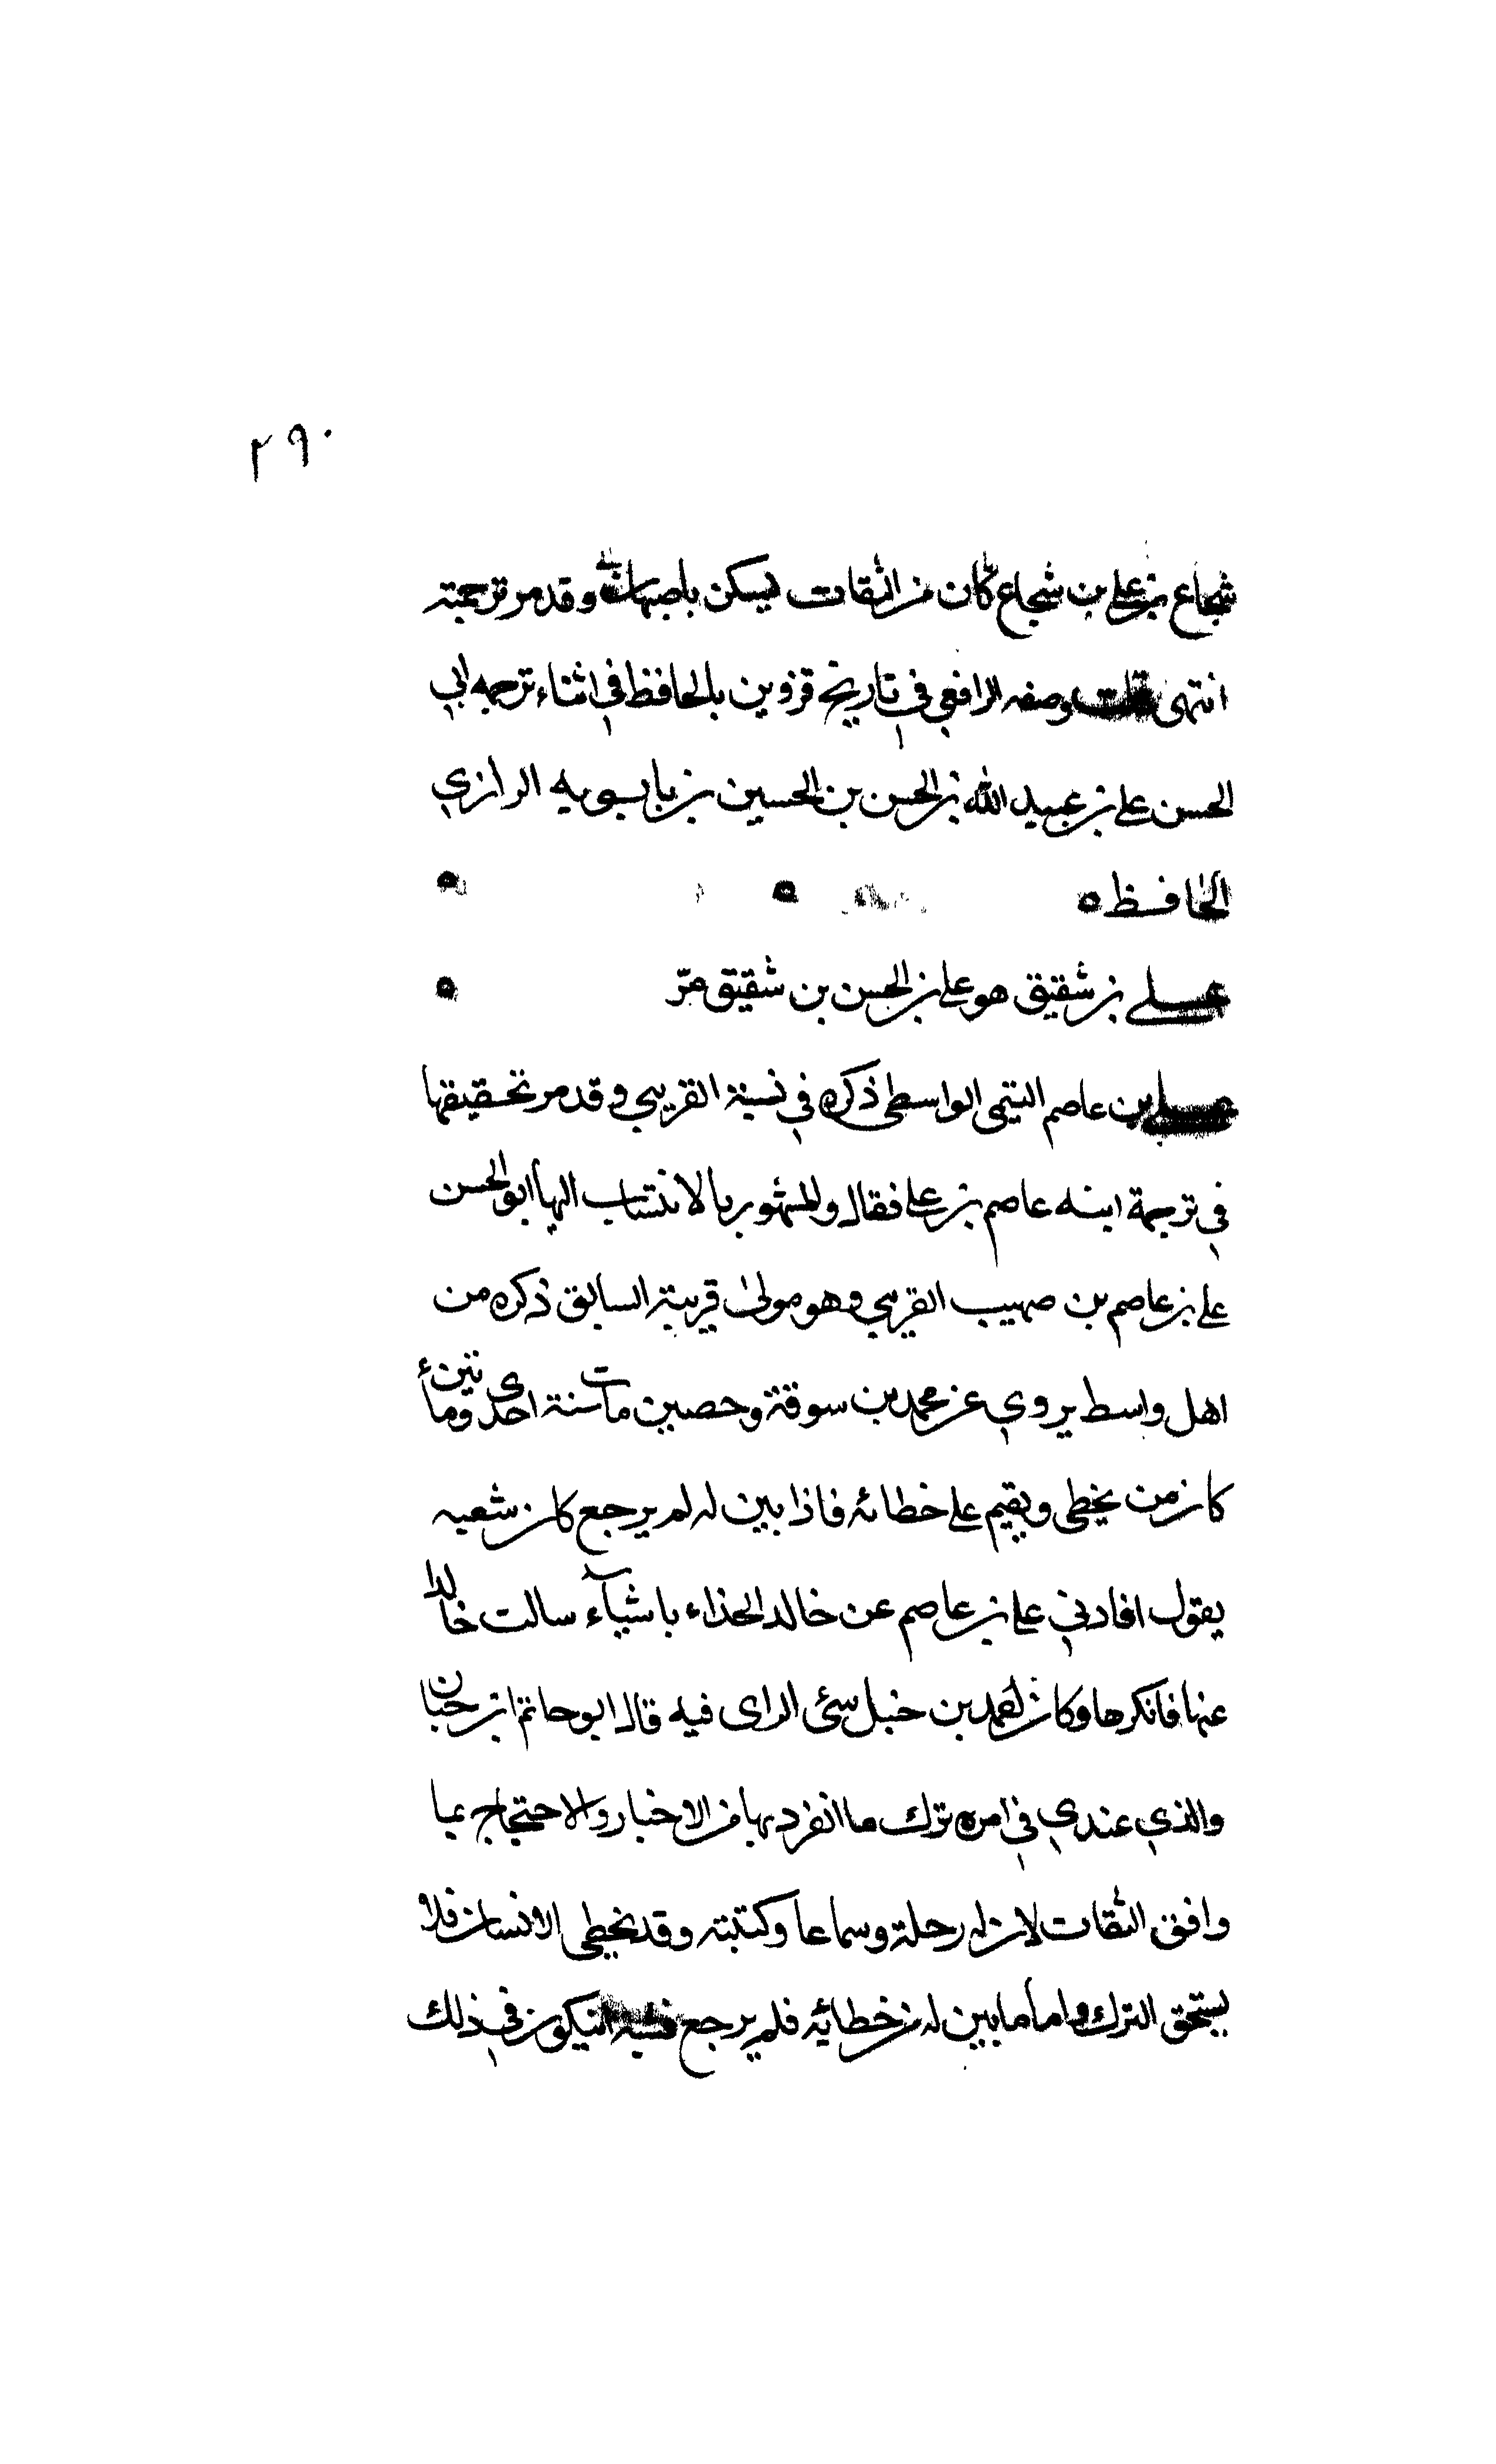 ٢٩٠
شجاع بن علي بن شجاع كان من الثقات يسكن باصبهان وقد مر ترجمته
انتهى قلت وصفه الرافعي في تاريخ قزوين بالحافظ في اثناء ترجمه ابي
الحسن علي بن عبيد الله بن الحسن بن الحسين بن بابويه الرازي
الحافظ ه
علي بن شقيق هو علي بن الحسن بن شقيق مرّ
علي بن عاصم التيمي الواسطي ذكره في نسبة القريبي وقد مر تحقيقها
في ترجمة ابنه عاصم بن علي فقال والمشهور بالانتساب اليها ابو الحسن
علي بن عاصم بن صهيب القريبي وهو مولى قريبة السابق ذكره من
اهل واسط يروي عن محمد بن سوقة وحصين مات سنة احدى ومأتين
كان من يخطى ويقيم على خطائه فاذا بين له لم يرجع كان شعبه
يقول افادني علي بن عاصم عن خالد الحذاء باشيآء سالت خالدا
عنها فانكرها وكان احمد بن حنبل سئ الراى فيه قال ابو حاتم ابن حبان
والذي عندي في امره ترك ما انفرد بها من الاخبار والاحتجاج بما
وافق الثقات لان له رحلة وسماعا وكتبته وقد يخطى الانسان فلا
يستحق الترك واما ما بين له من خطائه فلم يرجع فيشبه ان يكون في ذلك